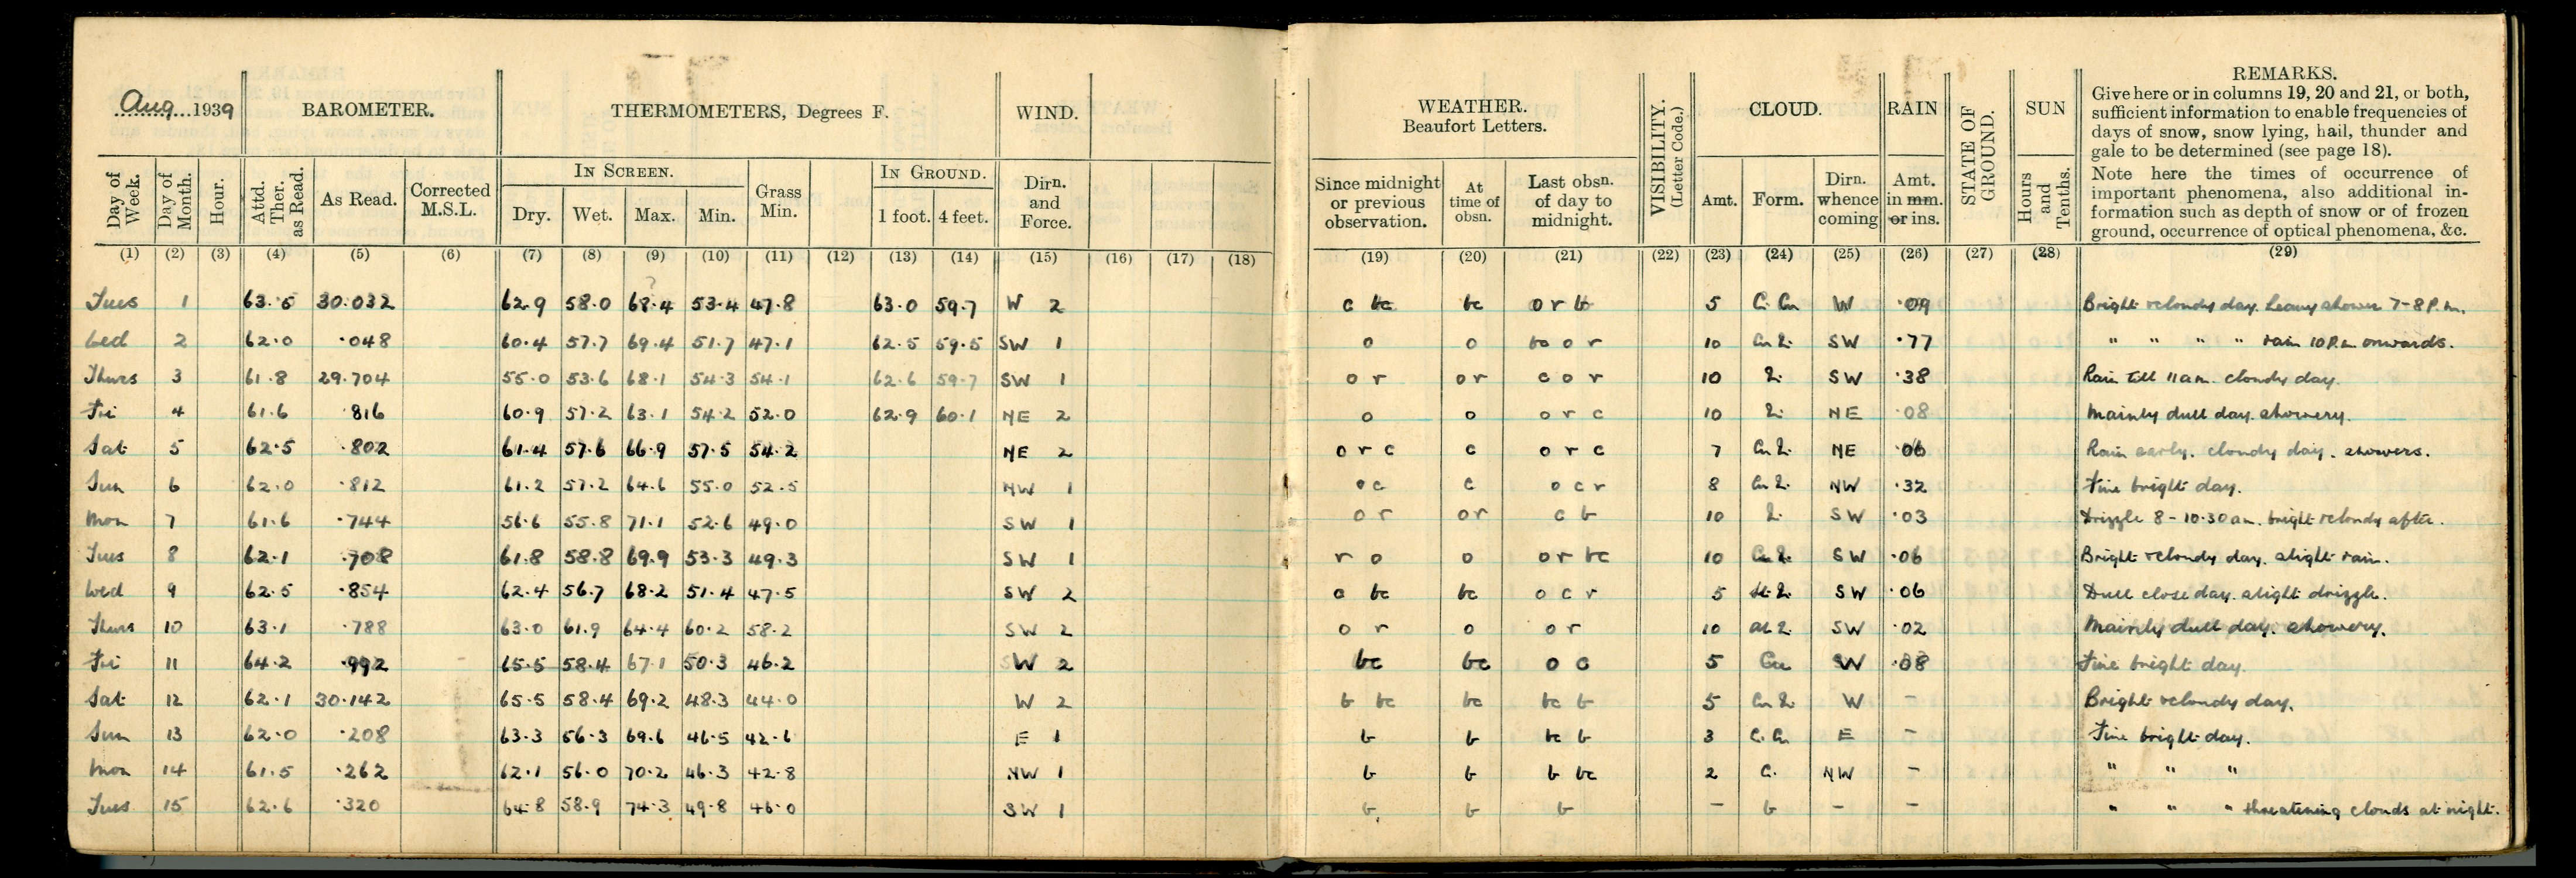 Aug 1939 BAROMETER. THERMOMETERS, Degrees F. WIND. WEATHER. Beaufort Letters. VISIBILITY. (Letter Code.) CLOUD. RAIN STATE OF GROUND. SUN REMARKS.
Give here or in columns 19, 20 and 21, or both,
sufficient information to enable frequencies of
days of snow, snow lying, hail, thunder and
gale to be determined (see page 18).
Note here the times of occurrence of
important phenomena, also additional in-
formation such as depth of snow or of frozen
ground, occurrence of optical phenomena, &c.
IN SCREEN. IN GROUND.
Day of Week. Day of Month. Hour. Attd. Ther. as Read. As Read. Corrected M.S.L. Dry. Wet. Max. Min. Grass Min. 1 foot. 4 feet. Dirn. and Force. Since midnight or previous observation. At time of obsn. Last obsn. of day to midnight. Amt. Form. Dirn. whence coming Amt. in mm. or ins. Hours and Tenths.
(1) (2) (3) (4) (5) (6) (7) (8) (9) (10) (11) (12) (13) (14) (15) (16) (17) (18) (19) (20) (21) (22) (23) (24) (25) (26) (27) (28) (29)
Tues 1 63.5 30.032 62.9 58.0 68.4 53.4 47.8 63.0 59.7 W 2 c bc bc o r b 5 Ci Cu W .09 Bright & cloudy day. heavy shower 7-8 P.m.
Wed 2 62.0 .048 60.4 57.7 69.4 51.7 47.1 62.5 59.5 SW 1 o o bc o r 10 SW .77 " " " " rain 10 P.m onwards.
Thurs 3 61.8 29.704 55.0 53.6 68.1 54.3 54.1 62.6 59.7 SW 1 o r o r c o r 10 SW .38 Rain till 11 am. cloudy day.
Fri 4 61.6 .816 60.9 57.2 63.1 54.2 52.0 62.9 60.1 NE 2 o o o r c 10 NE .08 Mainly dull day. showery.
Sat 5 62.5 .802 61.4 57.6 66.9 57.5 54.2 NE 2 o r c c o r c 7 NE .06 Rain early. cloudy day. showers.
Sun 6 62.0 .812 61.2 57.2 64.6 55.0 52.5 NW 1 o c c o c r 8 NW .32 Fine bright day.
Mon 7 61.6 .744 56.6 55.8 71.1 52.6 49.0 SW 1 o r o r c b 10 SW .03 Drizzle 8-10.30 am. bright & cloudy after.
Tues 8 62.1 .708 61.8 58.8 69.9 53.3 49.3 SW 1 r o o o r bc 10 SW .06 Bright & cloudy day. slight rain.
Wed 9 62.5 .854 62.4 56.7 68.2 51.4 47.5 SW 2 o bc bc o c r 5 SW .06 Dull close day. slight drizzle.
Thurs 10 63.1 .788 63.0 61.9 64.4 60.2 58.2 SW 2 o r o o r 10 SW .02 Mainly dull day. showery.
Fri 11 64.2 .992 65.5 58.4 67.1 50.3 46.2 W 2 bc bc o c 5 Cu W .08 Fine bright day.
Sat 12 62.1 30.142 65.5 58.4 69.2 48.3 44.0 W 2 b bc bc bc b 5 W - Bright & cloudy day.
Sun 13 62.0 .208 63.3 56.3 69.6 46.5 42.6 E 1 b b bc b 3 Ci Cu E - Fine bright day.
Mon 14 61.5 .262 62.1 56.0 70.2 46.3 42.8 NW 1 b b b bc 2 Ci NW - " " "
Tues 15 62.6 .320 64.8 58.9 74.3 49.8 46.0 SW 1 b b b - b - - " " " threatening clouds at night.